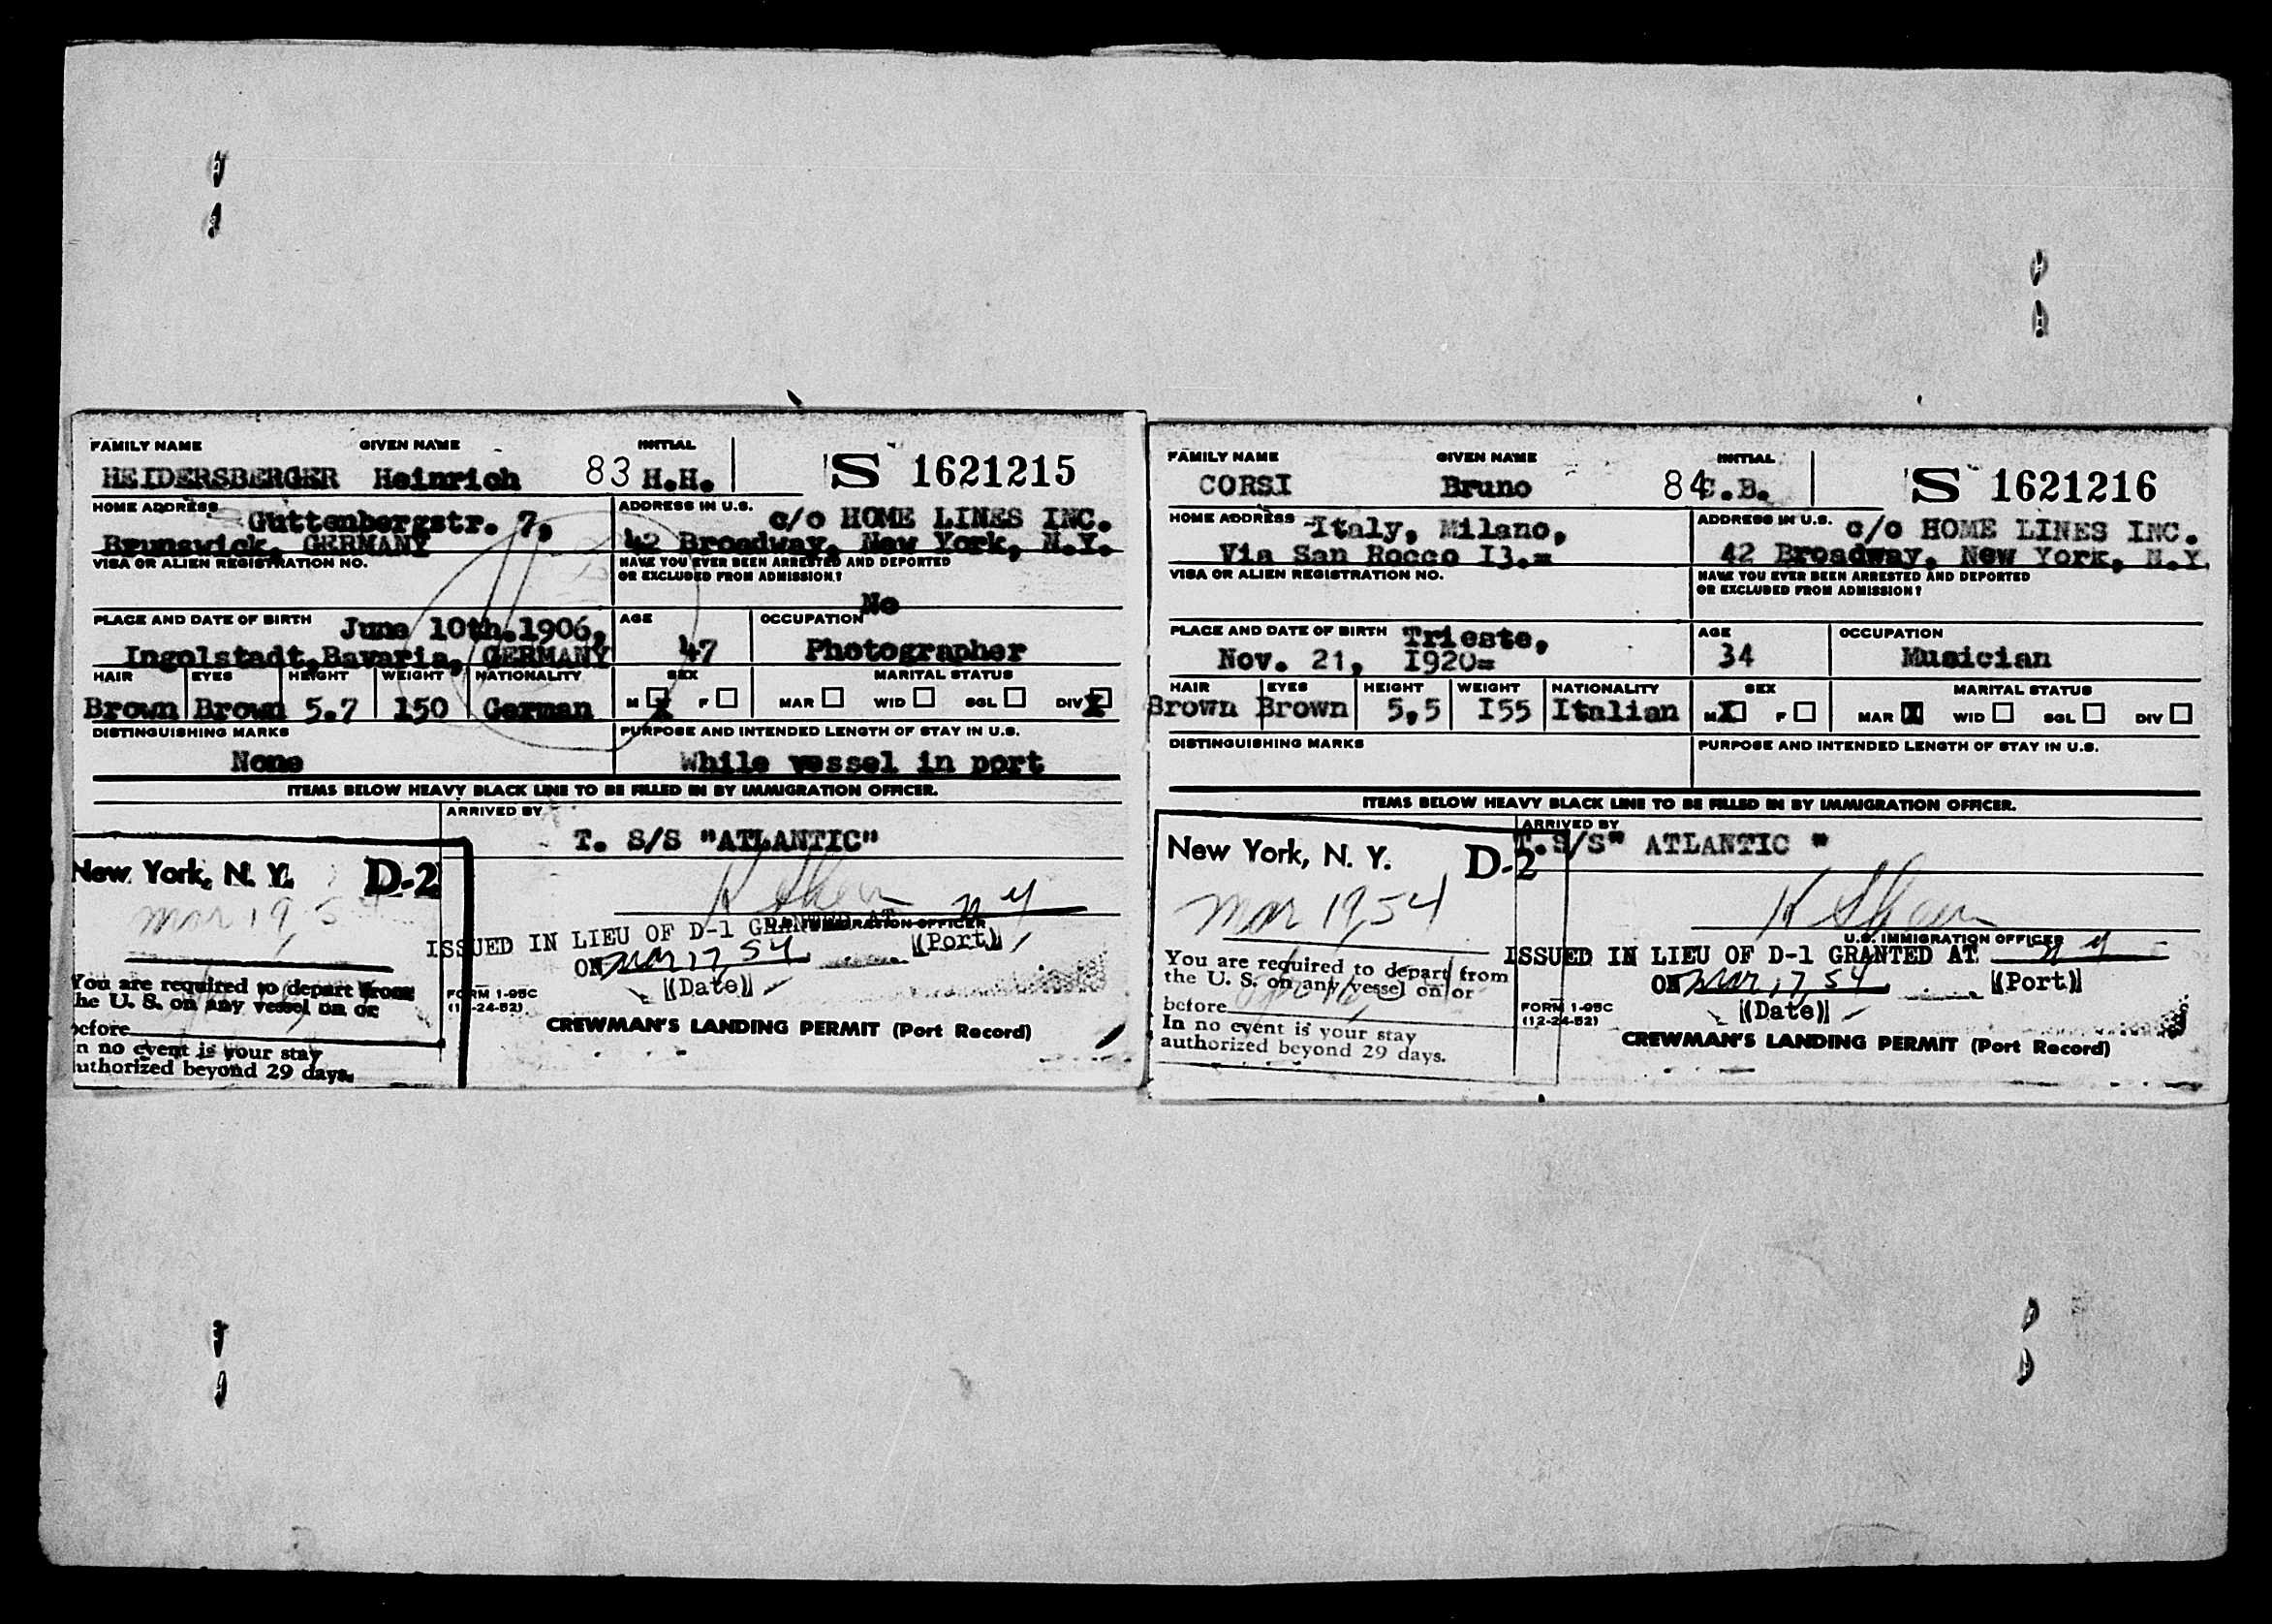 FAMILY NAME GIVEN NAME INITIAL
HEIDERSBERGER Heinrich 83 H.H. S 1621215
HOME ADDRESS Guttenbergstr. 7,
Brunswick, GERMANY
ADDRESS IN U.S. c/o HOME LINES INC.
42 Broadway, New York, N.Y.
VISA OR ALIEN REGISTRATION NO.
HAVE YOU EVER BEEN ARRESTED AND DEPORTED
OR EXCLUDED FROM ADMISSION?
No
PLACE AND DATE OF BIRTH June 10th.1906,
Ingolstadt,Bavaria, GERMANY
AGE OCCUPATION
47 Photographer
HAIR EYES HEIGHT WEIGHT NATIONALITY SEX MARITAL STATUS
Brown Brown 5.7 150 German M X F MAR WID SGL DIV X
DISTINGUISHING MARKS
None
PURPOSE AND INTENDED LENGTH OF STAY IN U.S.
While vessel in port
ITEMS BELOW HEAVY BLACK LINE TO BE FILLED IN BY IMMIGRATION OFFICER.
ARRIVED BY
T. S/S "ATLANTIC"
New York, N. Y. D-2
Mar 19, 54
You are required to depart from
the U. S. on any vessel on or
before
In no event is your stay
authorized beyond 29 days.
ISSUED IN LIEU OF D-1 GRANTED AT NY
(Port)
ON Mar 17, 54
(Date)
FORM 1-95C
(12-24-52)
CREWMAN'S LANDING PERMIT (Port Record)
FAMILY NAME GIVEN NAME INITIAL
CORSI Bruno 84 C.B. S 1621216
HOME ADDRESS -Italy, Milano,
Via San Rocco I3.=
ADDRESS IN U.S. c/o HOME LINES INC.
42 Broadway, New York, N.Y.
VISA OR ALIEN REGISTRATION NO.
HAVE YOU EVER BEEN ARRESTED AND DEPORTED
OR EXCLUDED FROM ADMISSION?
PLACE AND DATE OF BIRTH Trieste,
Nov. 21, I920=
AGE OCCUPATION
34 Musician
HAIR EYES HEIGHT WEIGHT NATIONALITY SEX MARITAL STATUS
Brown Brown 5,5 I55 Italian M X F MAR X WID SGL DIV
DISTINGUISHING MARKS
PURPOSE AND INTENDED LENGTH OF STAY IN U.S.
ITEMS BELOW HEAVY BLACK LINE TO BE FILLED IN BY IMMIGRATION OFFICER.
ARRIVED BY
T.S/S" ATLANTIC "
New York, N. Y. D-2
Mar 19, 54
You are required to depart from
the U. S. on any vessel on or
before
In no event is your stay
authorized beyond 29 days.
U.S. IMMIGRATION OFFICER
ISSUED IN LIEU OF D-1 GRANTED AT NY
ON Mar 17, 54 (Port)
(Date)
FORM 1-95C
(12-24-52)
CREWMAN'S LANDING PERMIT (Port Record)